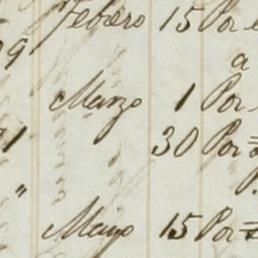 Febrero 15 Por
9 a
Marzo 1 Por
1 30 Por
" P.
Mayo 15 Por